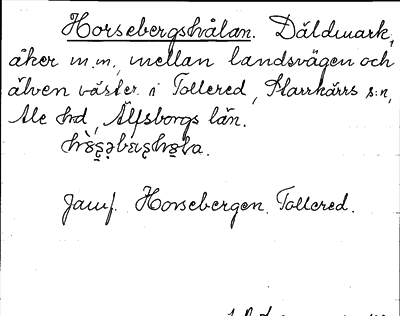 Horsebergshålan. Däldmark,
åker m.m, mellan landsvägen och
älven väster i Tollered, Starrkärrs s:n,
Ale hd, Älfsborgs län.
Jämf. Horsebergen. Tollered.